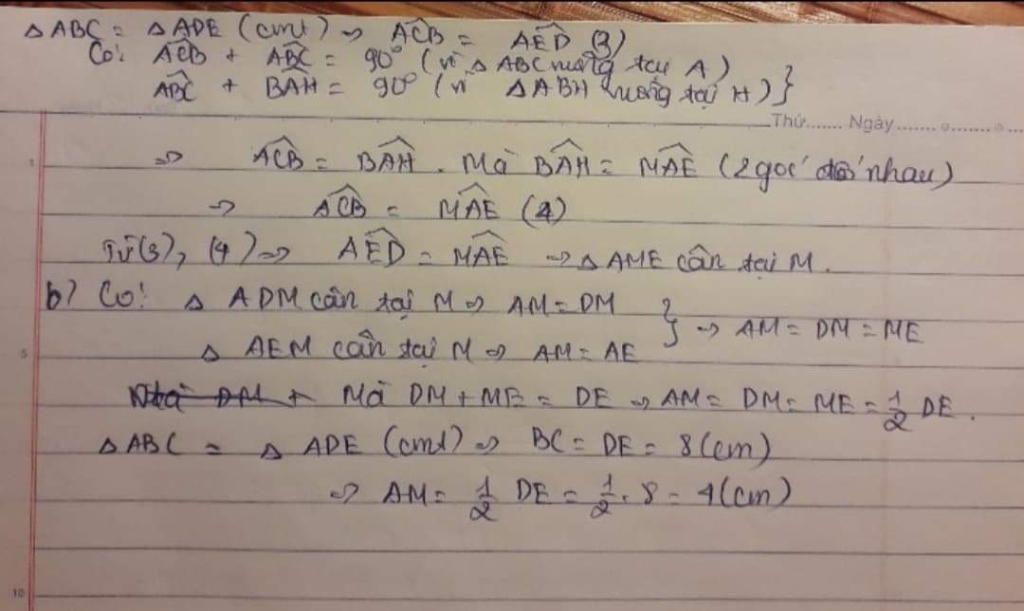 △ ABC = △ ADE (cmt) => ACB = AED (3)
Có: ACB + ABC = 90° (vì △ ABC vuông tại A) }
ABC + BAH = 90° (vì △ABH vuông tại H) }
Thứ....... Ngày...............
=> ACB = BAH . Mà BAH = MAE (2 góc đối nhau)
=> ACB = MAE (4)
Từ (3), (4) => AED = MAE => △ AME cân tại M.
b) Có: △ ADM cân tại M => AM = DM } => AM = DM = ME
△ AEM cân tại M => AM = AE
Mà DM + ME = DE => AM = DM = ME = 1/2 DE.
△ ABC = △ ADE (cmt) => BC = DE = 8 (cm)
=> AM = 1/2 DE = 1/2 . 8 = 4 (cm)
5
10